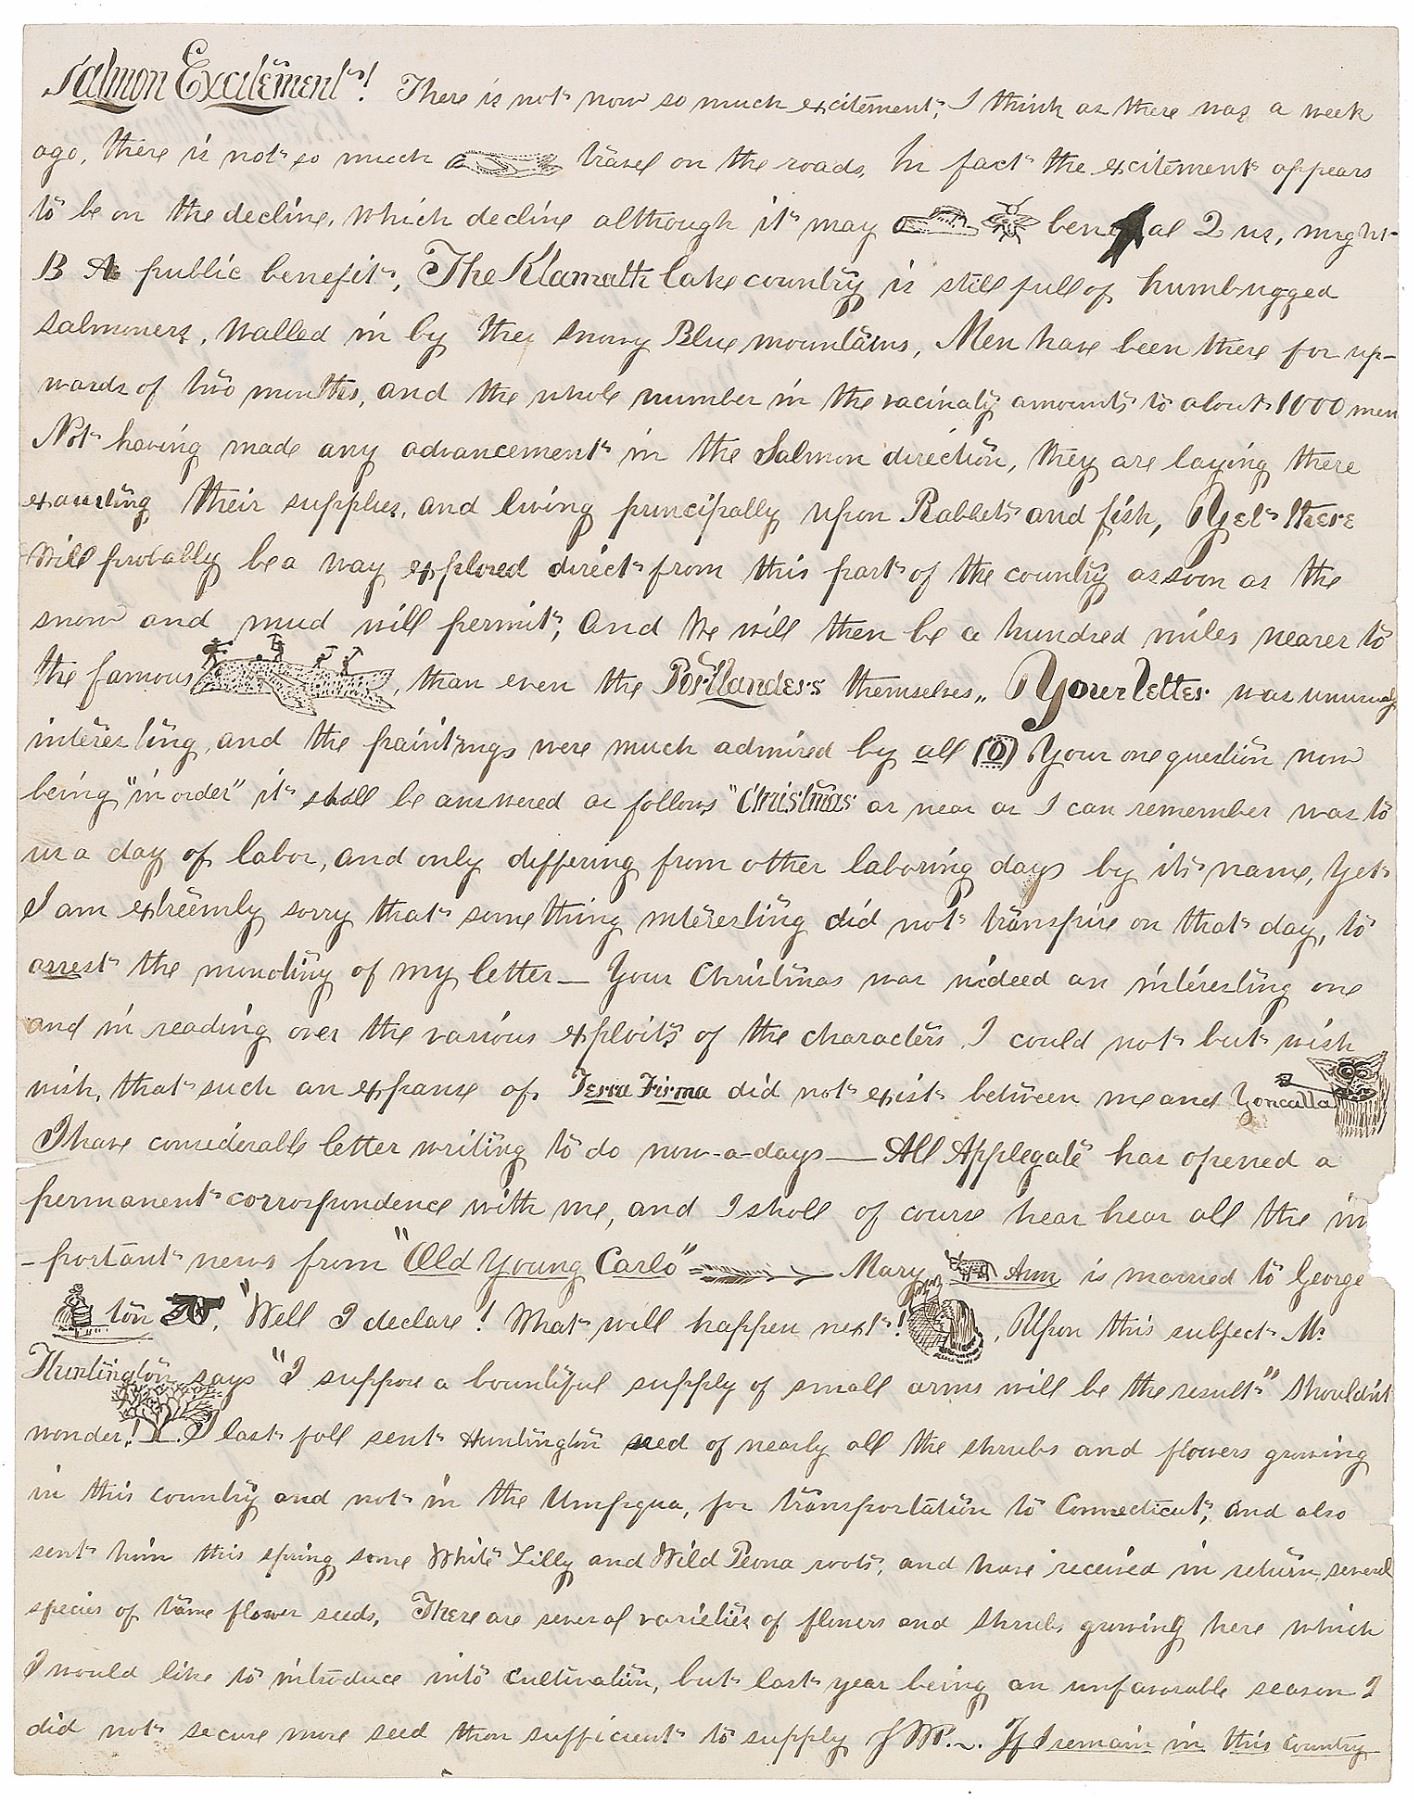 Salmon Excitement! There is not now so much excitement, I think as there was a week
ago, there is not so much travel on the roads, In fact the excitement appears
to be on the decline, which decline although it may al 2 us, might
B A public benefit, The Klamath lake country is still full of humbugged
salmoners, walled in by they snowy Blue mountains, Men have been there for up-
wards of two months, and the whole number in the vacinaty amounts to about 1000 men
Not having made any advancement in the Salmon direction, they are laying there
exausting their supplies, and living principally upon Rabbets and fish, Yet there
will probably be a way explored direct from this part of the country as soon as the
snow and mud will permit, And We will then be a hundred miles nearer to
the famous , than even the Portlanders themselves,, Your letter was unusualy
interesting, and the paintings were much admired by all (O) Your one question now
being "in order" it shall be answered as follows "Christmas as near as I can remember was to
us a day of labor, and only differing from other laboring days by its name, Yet
I am extreemly sorry that something interesting did not transpire on that day, to
arrest the monotiny of my letter— Your Christmas was indeed an interesting one
and in reading over the various exploits of the characters I could not but wish
wish, that such an expanse of Terra Firma did not exist between me and Yoncalla
I have considerable letter writing to do now-a-days— All Applegate has opened a
permanent corrospondence with me, and I shall of course hear hear all the im
-portant news from "Old Young Carlo" Mary Ann is married to George
ton . "Well I declare! What will happen next! , Upon this subject Mr
Huntington says "I suppose a bountiful supply of small arms will be the result" Shouldnt
wonder! . I last fall sent Huntington seed of nearly all the shrubs and flowers growing
in this country and not in the Umpqua, for transportation to Connecticut, and also
sent him this spring some White Lilly and Wild Peona roots, and have received in return, several
species of tame flower seeds, There are several varieties of flowers and shrubs growing here which
I would like to introduce into cultivation, but last year being an unfavorable season I
did not secure more seed than sufficient to supply J W P.~. If I remain in this country